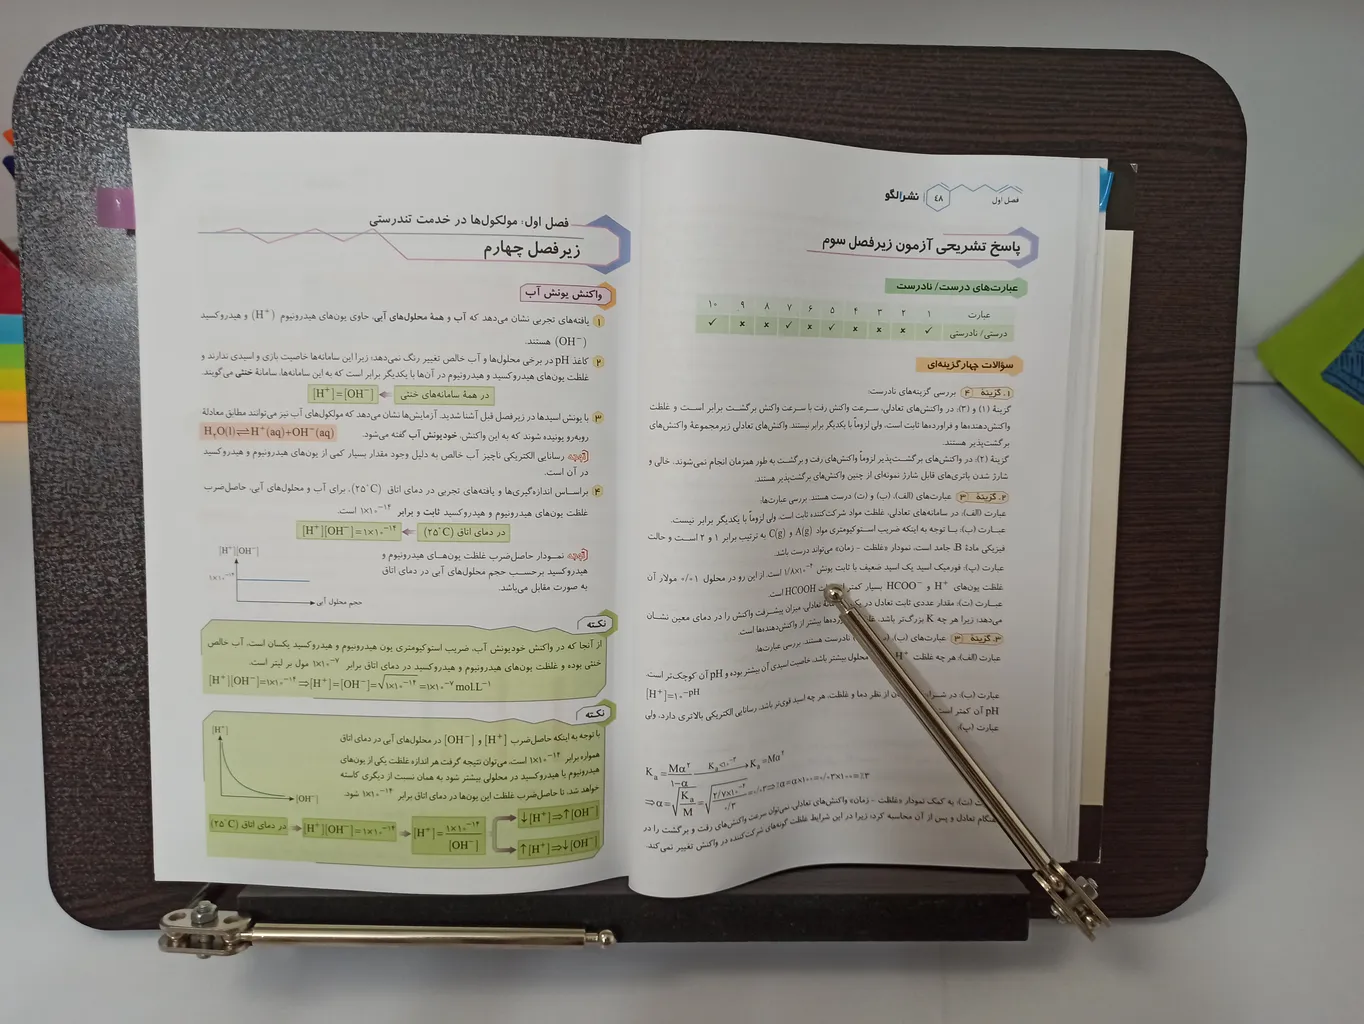 فصل اول
٤٨
نشرالگو
پاسخ تشریحی آزمون زیرفصل سوم
عبارت‌های درست/ نادرست
عبارت ۱ ۲ ۳ ۴ ۵ ۶ ۷ ۸ ۹ ۱۰
درستی/ نادرستی ✓ × × × ✓ × ✓ × × ✓
سؤالات چهارگزینه‌ای
۱. گزینهٔ ۴ بررسی گزینه‌های نادرست:
گزینهٔ (۱) و (۳): در واکنش‌های تعادلی، سرعت واکنش رفت با سرعت واکنش برگشت برابر است و غلظت
واکنش‌دهنده‌ها و فراورده‌ها ثابت است، ولی لزوماً با یکدیگر برابر نیستند. واکنش‌های تعادلی زیرمجموعهٔ واکنش‌های
برگشت‌پذیر هستند.
گزینهٔ (۲): در واکنش‌های برگشت‌پذیر لزوماً واکنش‌های رفت و برگشت به طور همزمان انجام نمی‌شوند. خالی و
شارژ شدن باتری‌های قابل شارژ نمونه‌ای از چنین واکنش‌های برگشت‌پذیر هستند.
۲. گزینهٔ ۳ عبارت‌های (الف)، (ب) و (ت) درست هستند. بررسی عبارت‌ها:
عبارت (الف): در سامانه‌های تعادلی، غلظت مواد شرکت‌کننده ثابت است، ولی لزوماً با یکدیگر برابر نیست.
عبارت (ب): با توجه به اینکه ضریب استوکیومتری مواد A(g) و C(g) به ترتیب برابر ۱ و ۲ است و حالت
فیزیکی مادهٔ B، جامد است، نمودار «غلظت - زمان» می‌تواند درست باشد.
عبارت (پ): فورمیک اسید یک اسید ضعیف با ثابت یونش ۱/۸×۱۰⁻⁴ است. از این رو در محلول ۰/۰۱ مولار آن
غلظت یون‌های H⁺ و HCOO⁻ بسیار کمتر از HCOOH است.
عبارت (ت): مقدار عددی ثابت تعادل در تعادلی، میزان پیشرفت واکنش را در دمای معین نشان
می‌دهد؛ زیرا هر چه K بزرگ‌تر باشد، بیشتر از واکنش‌دهنده‌ها است.
۳. گزینهٔ ۳ عبارت‌های (ب)، نادرست هستند. بررسی عبارت‌ها:
عبارت (الف): هر چه غلظت H⁺ محلول بیشتر باشد، خاصیت اسیدی آن بیشتر بوده و pH آن کوچک‌تر است.
[H⁺]=۱۰⁻pH
عبارت (ب): در از نظر دما و غلظت، هر چه اسید قوی‌تر باشد، رسانایی الکتریکی بالاتری دارد، ولی
pH آن کمتر است
عبارت (پ):
Ka=Mα²/(۱-α) → Ka=Mα²
⇒α=√(Ka/M)=√(۲/۷×۱۰⁻⁴/۰/۳)=۰/۰۳⇒٪α=α×۱۰۰=۰/۰۳×۱۰۰=٪۳
(ت): به کمک نمودار «غلظت - زمان» واکنش‌های تعادلی، نمی‌توان سرعت واکنش‌های رفت و برگشت را در
هنگام تعادل و پس از آن محاسبه کرد؛ زیرا در این شرایط غلظت گونه‌های شرکت‌کننده در واکنش تغییر نمی‌کند.
فصل اول: مولکول‌ها در خدمت تندرستی
زیرفصل چهارم
واکنش یونش آب
۱ یافته‌های تجربی نشان می‌دهد که آب و همهٔ محلول‌های آبی، حاوی یون‌های هیدرونیوم (H⁺) و هیدروکسید
(OH⁻) هستند.
۲ کاغذ pH در برخی محلول‌ها و آب خالص تغییر رنگ نمی‌دهد؛ زیرا این سامانه‌ها خاصیت بازی و اسیدی ندارند و
غلظت یون‌های هیدروکسید و هیدرونیوم در آن‌ها با یکدیگر برابر است که به این سامانه‌ها، سامانهٔ خنثی می‌گویند.
در همهٔ سامانه‌های خنثی ← [H⁺]=[OH⁻]
۳ با یونش اسیدها در زیرفصل قبل آشنا شدید. آزمایش‌ها نشان می‌دهد که مولکول‌های آب نیز می‌توانند مطابق معادلهٔ
روبه‌رو یونیده شوند که به این واکنش، خودیونش آب گفته می‌شود. H₂O(l)⇌H⁺(aq)+OH⁻(aq)
رسانایی الکتریکی ناچیز آب خالص به دلیل وجود مقدار بسیار کمی از یون‌های هیدرونیوم و هیدروکسید
در آن است.
۴ براساس اندازه‌گیری‌ها و یافته‌های تجربی در دمای اتاق (۲۵°C)، برای آب و محلول‌های آبی، حاصل‌ضرب
غلظت یون‌های هیدرونیوم و هیدروکسید ثابت و برابر ۱×۱۰⁻¹⁴ است.
در دمای اتاق (۲۵°C) ← [H⁺][OH⁻]=۱×۱۰⁻¹⁴
نمودار حاصل‌ضرب غلظت یون‌های هیدرونیوم و
هیدروکسید برحسب حجم محلول‌های آبی در دمای اتاق
به صورت مقابل می‌باشد.
[H⁺][OH⁻]
۱×۱۰⁻¹⁴
حجم محلول آبی
نکته
از آنجا که در واکنش خودیونش آب، ضریب استوکیومتری یون هیدرونیوم و هیدروکسید یکسان است، آب خالص
خنثی بوده و غلظت یون‌های هیدرونیوم و هیدروکسید در دمای اتاق برابر ۱×۱۰⁻⁷ مول بر لیتر است.
[H⁺][OH⁻]=۱×۱۰⁻¹⁴⇒[H⁺]=[OH⁻]=√۱×۱۰⁻¹⁴=۱×۱۰⁻⁷ mol.L⁻¹
نکته
با توجه به اینکه حاصل‌ضرب [H⁺] و [OH⁻] در محلول‌های آبی در دمای اتاق
همواره برابر ۱×۱۰⁻¹⁴ است، می‌توان نتیجه گرفت هر اندازه غلظت یکی از یون‌های
هیدرونیوم یا هیدروکسید در محلولی بیشتر شود به همان نسبت از دیگری کاسته
خواهد شد، تا حاصل‌ضرب غلظت این یون‌ها در دمای اتاق برابر ۱×۱۰⁻¹⁴ شود.
[H⁺]
[OH⁻]
در دمای اتاق (۲۵°C) → [H⁺][OH⁻]=۱×۱۰⁻¹⁴ → [H⁺]=۱×۱۰⁻¹⁴/[OH⁻]
↓[H⁺]⇒↑[OH⁻]
↑[H⁺]⇒↓[OH⁻]